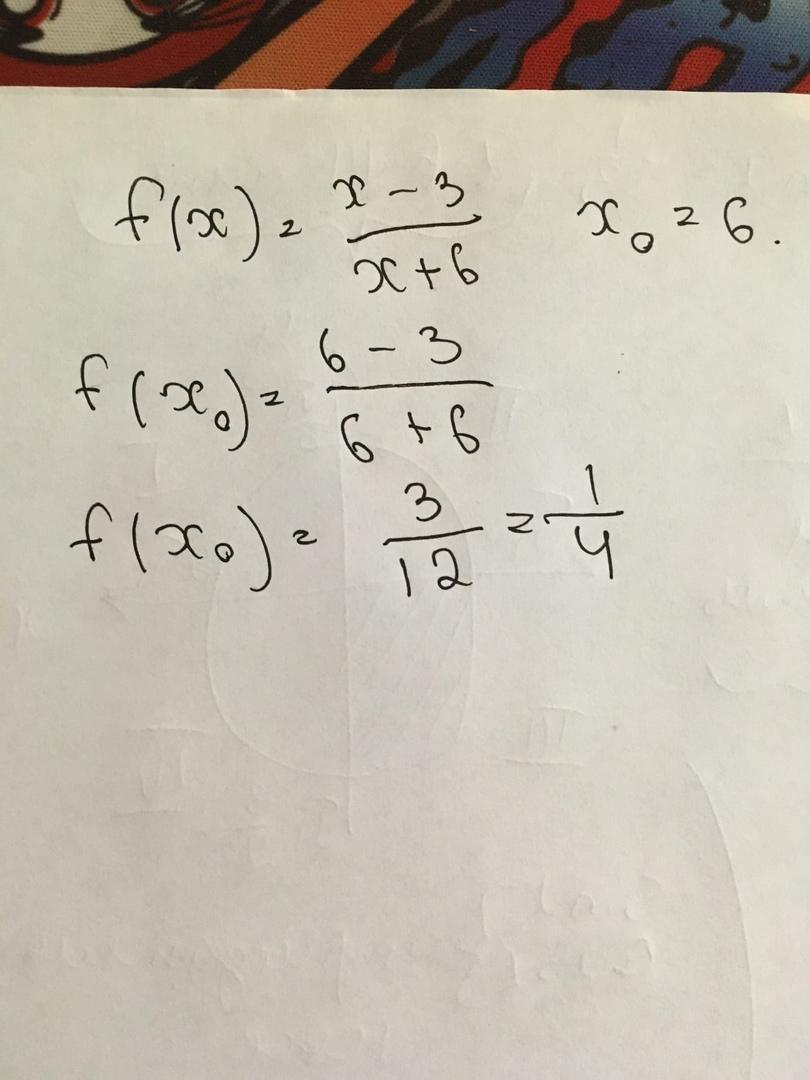 f(x) = (x - 3)/(x + 6) x₀ = 6.
f(x₀) = (6 - 3)/(6 + 6)
f(x₀) = 3/12 = 1/4